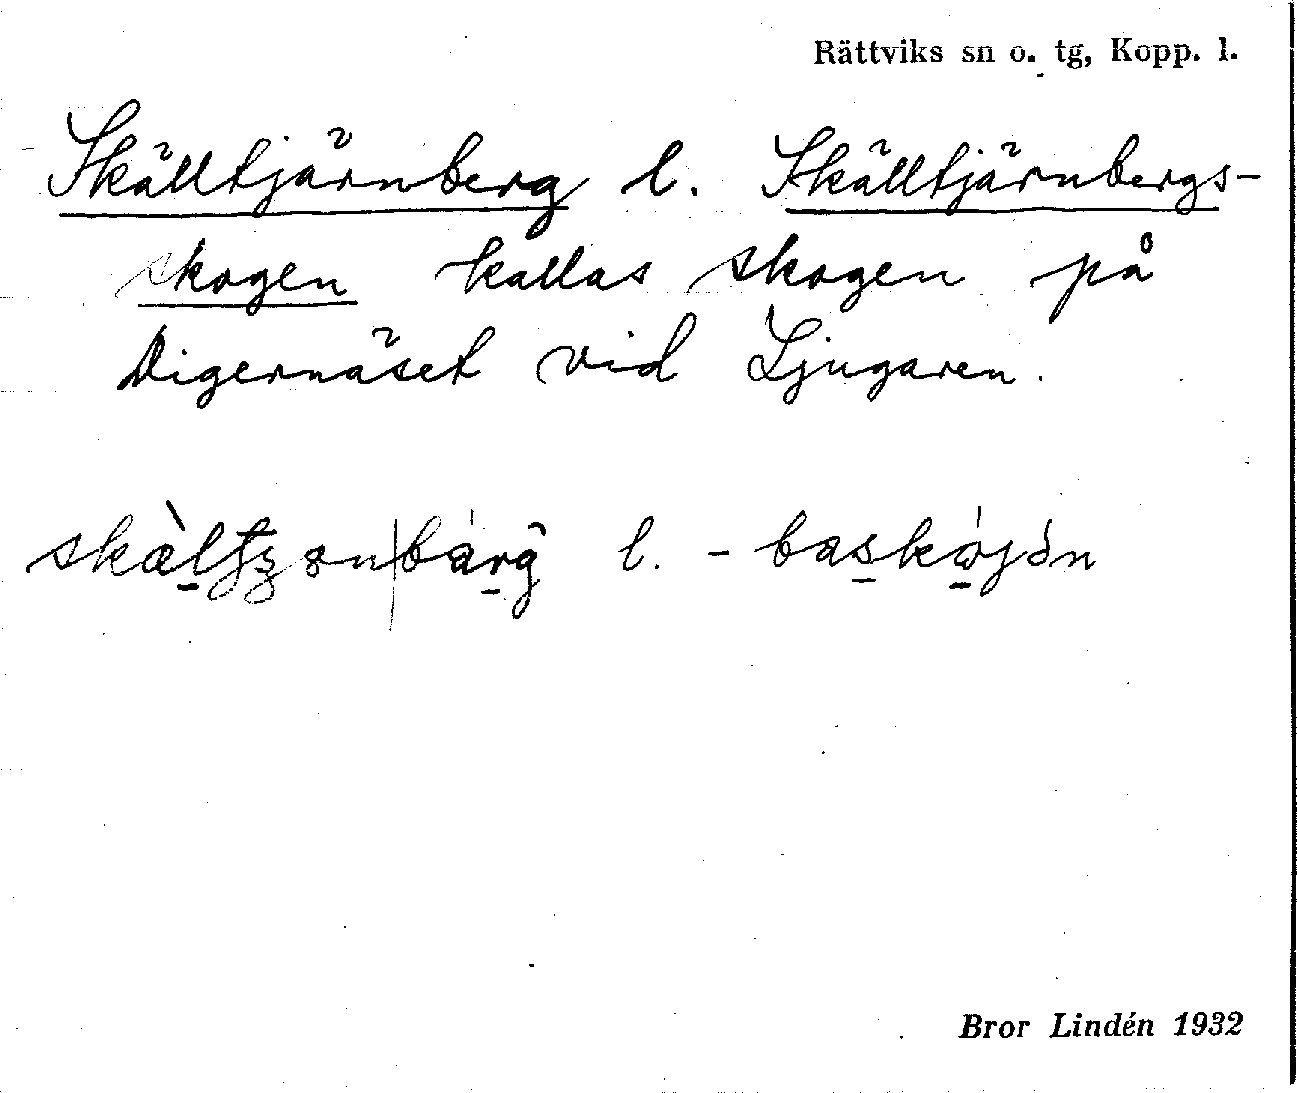 Rättviks sn o. tg, Kopp. l.
Skälltjärnberg l. Skälltjärnbergs-
skogen kallas skogen på
Digernäset vid Ljugaren.
l. -
Bror Lindén 1932